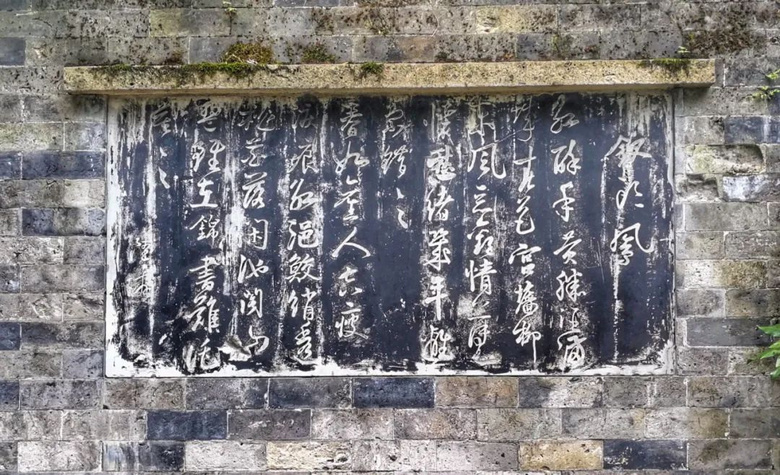 釵頭鳳
紅酥手黃縢酒滿
城春色宮墻柳
東風惡歡情薄一
懷愁緒幾年離
索錯〻〻
春如舊人空瘦
淚痕紅浥鮫綃透
桃花落閑池閣山
盟雖在錦書難托
莫〻〻